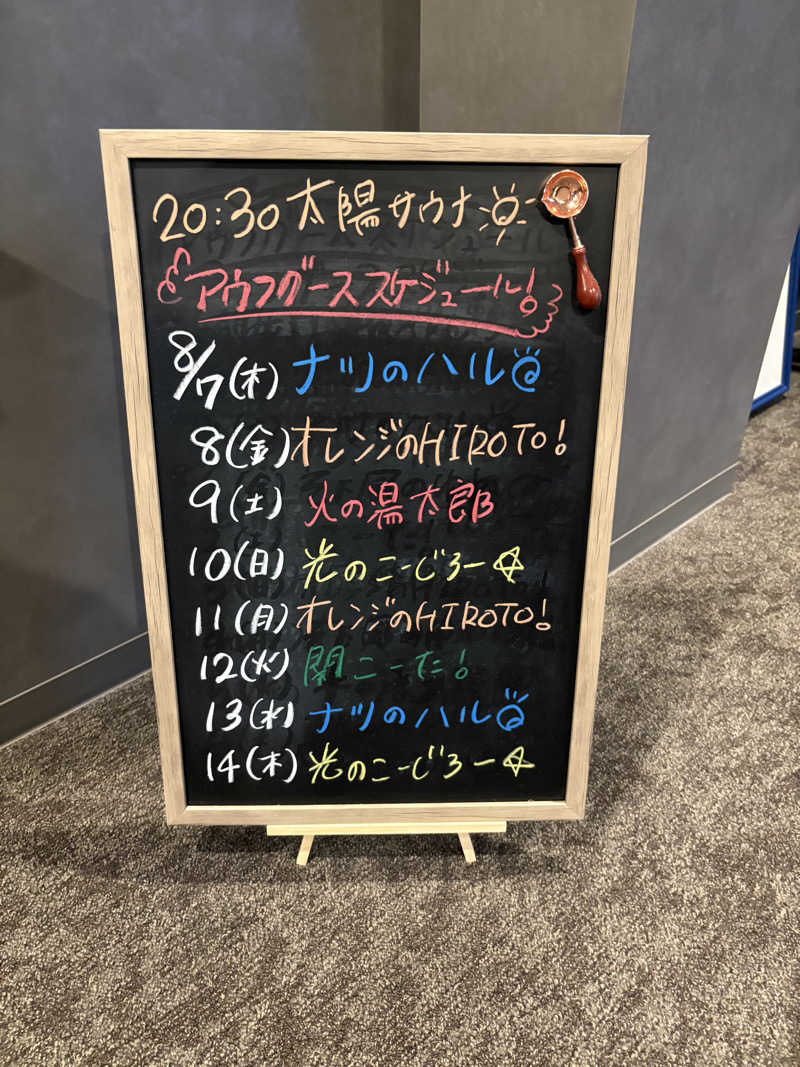 20:30 太陽サウナ
アウフグーススケジュール!
8/7(木) ナツのハル
8(金) オレンジのHIROTO!
9(土) 火の湯太郎
10(日) 光のこーじろー☆
11(月) オレンジのHIROTO!
12(火) 関こーた!
13(水) ナツのハル
14(木) 光のこーじろー☆